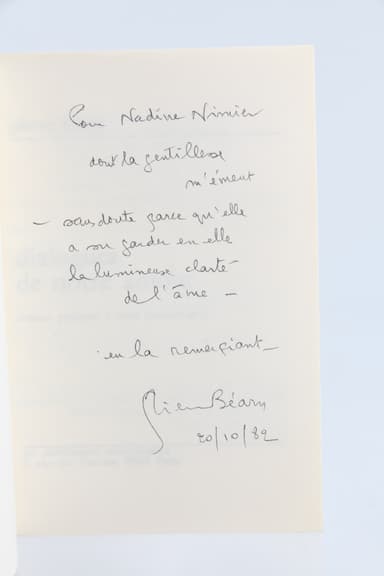 Pour Nadine Nimier
dont la gentillesse
m'émeut
— sans doute parce qu'elle
a su garder en elle
la lumineuse clarté
de l'âme —
en la remerciant —
Pierre Béarn
20/10/82
de notre